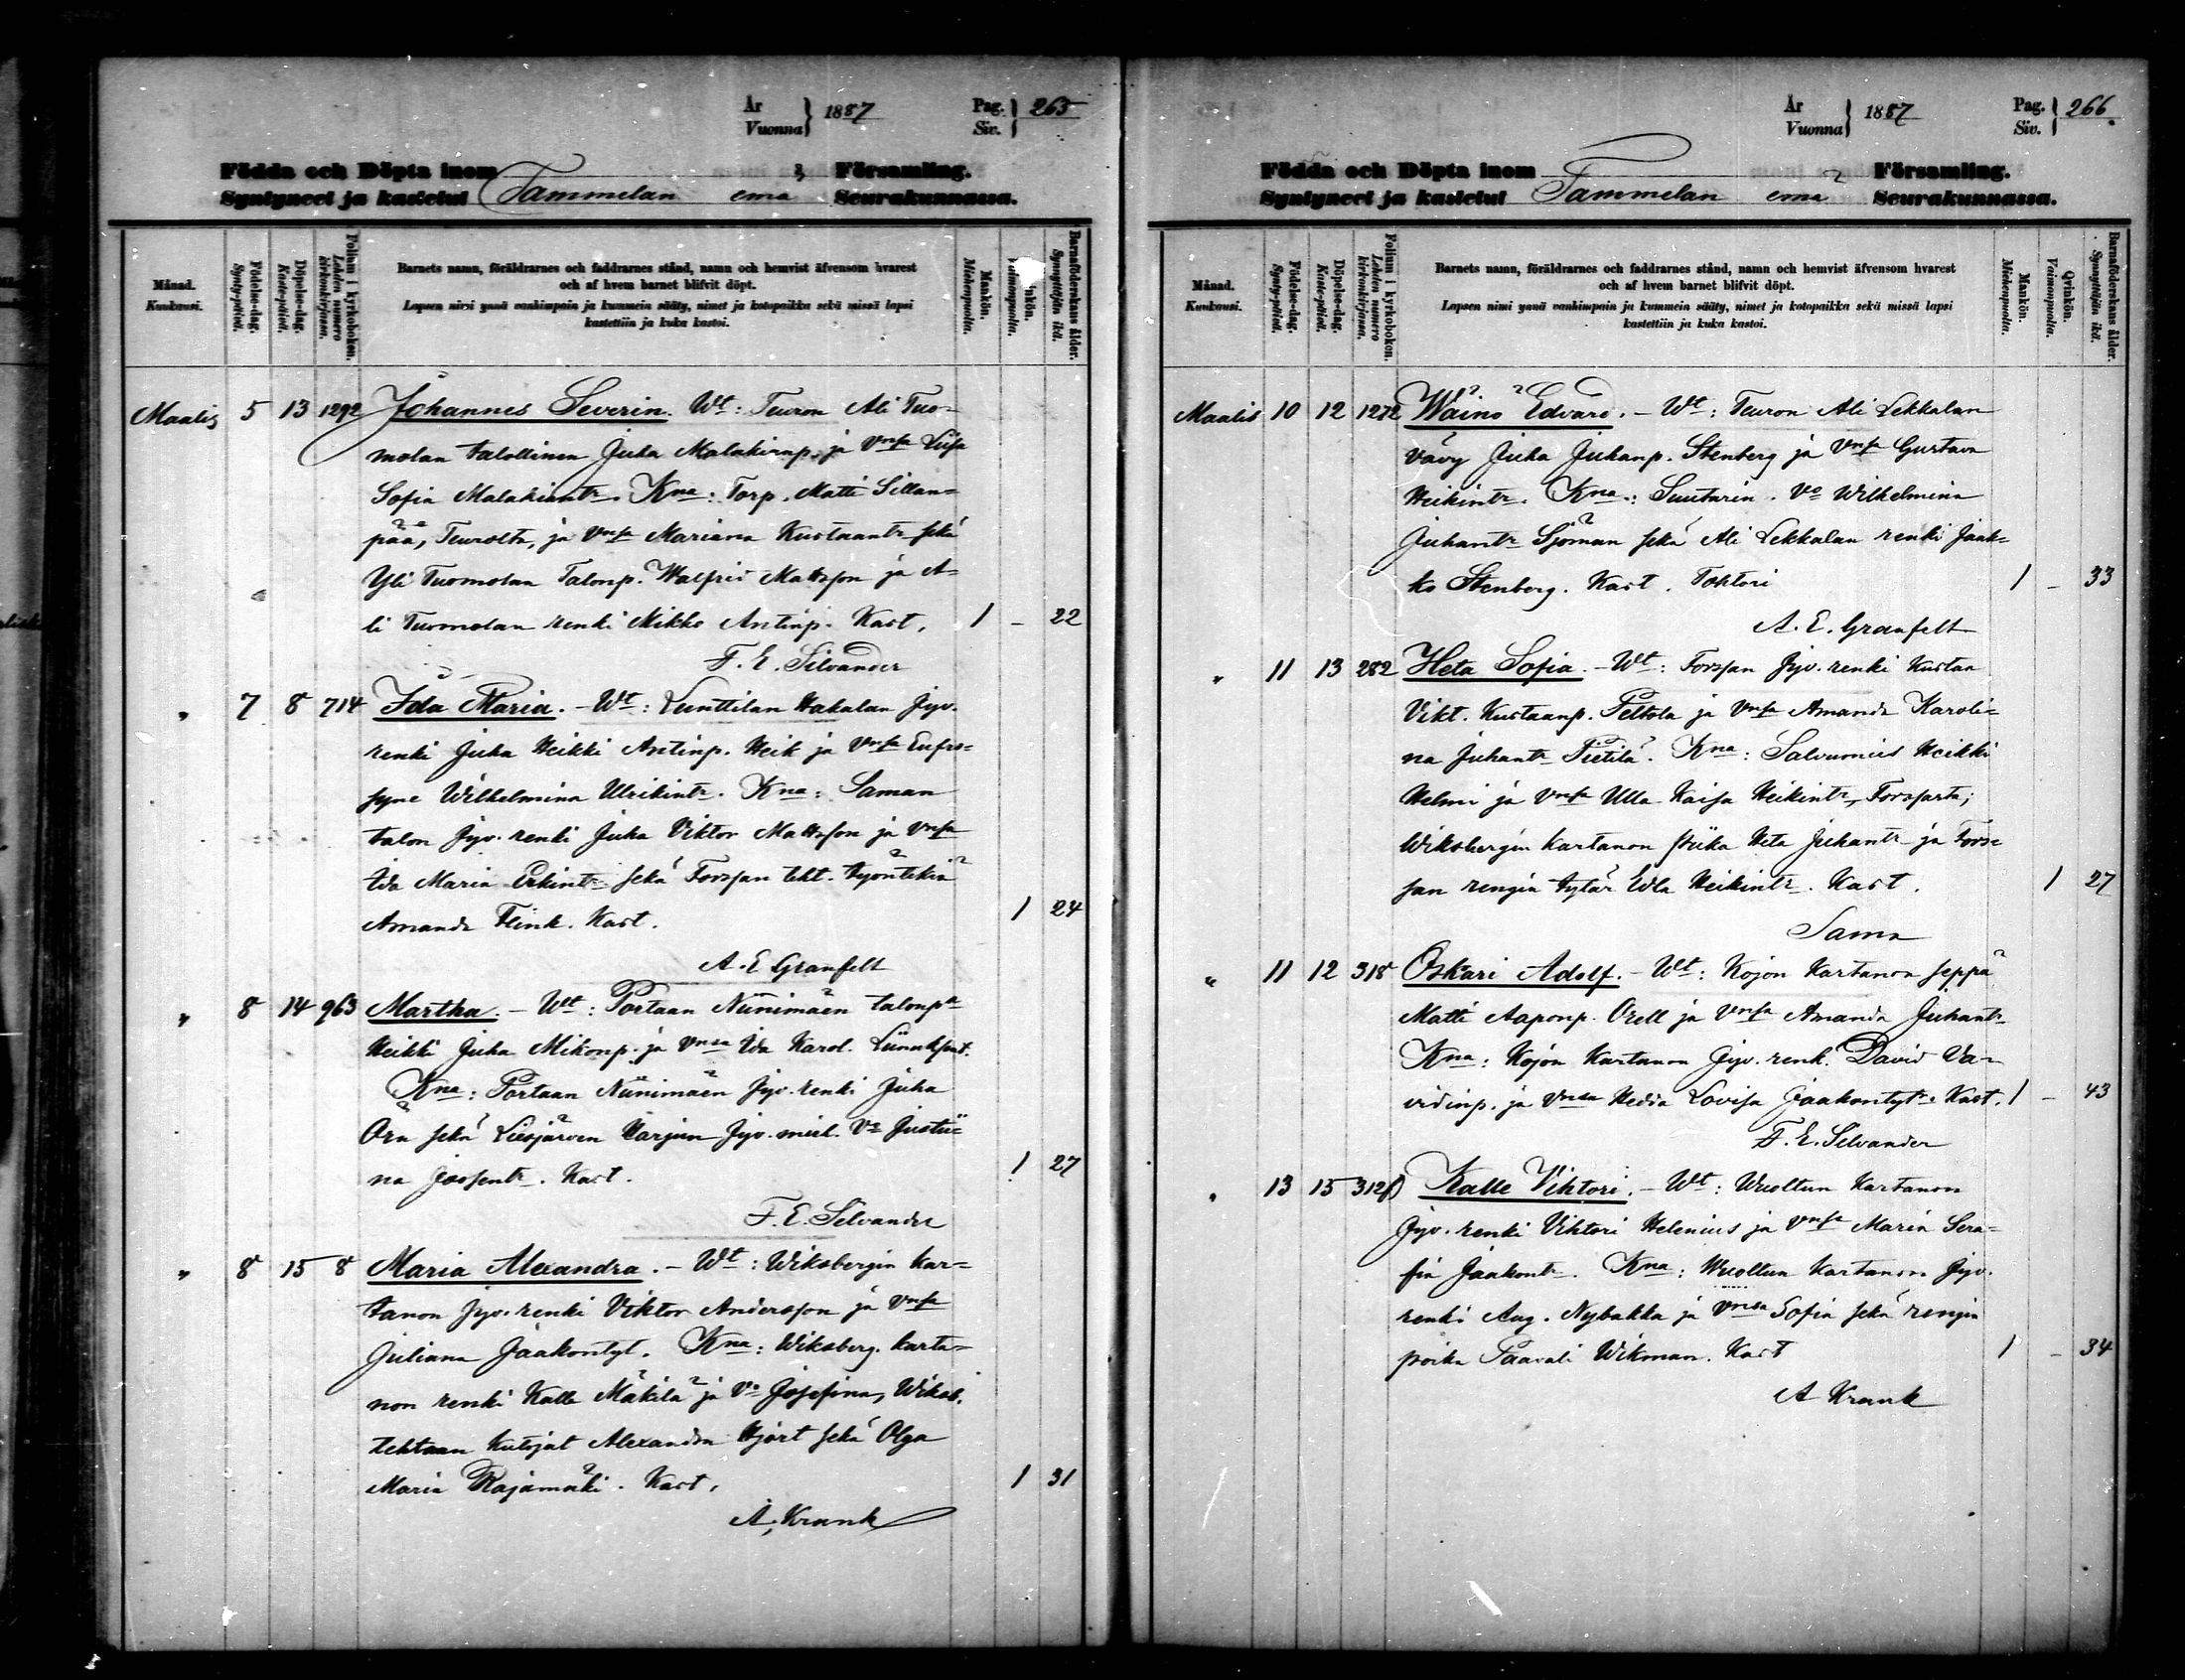 År
Vuonna } 1887
Pag.
Siv. } 265
Födda och Döpta inom Församling.
Syntyneet ja kastetut Tammelan emä Seurakunnassa.
Månad. Kuukausi.
Födelse-dag. Synty-päivä.
Döpelse-dag. Kaste-päivä.
Folium i kyrkoboken. Lehden numero kirkonkirjassa.
Barnets namn, föräldrarnes och faddrarnes stånd, namn och hemvist äfvensom hvarest
och af hvem barnet blifvit döpt.
Lapsen nimi ynnä vanhimpain ja kummein sääty, nimet ja kotopaikka sekä missä lapsi
kastettiin ja kuka kastoi.
Mankön. Miehenpuolta.
Barnaföderskans ålder. Synnyttäjän ikä.
Maalis 5 13 1292 Johannes Severin. Wt: Teuron Ali Tuo-
molan talollinen Juha Malakinp. ja vnsa Liisa
Sofia Malakiantr. Kna: Torp. Matti Sillan-
pää, Teurolta, ja vnsa Mariana Kustaantr sekä
Yli Tuomolan Talonp. Walfrid Mattsson ja A-
li Tuomolan renki Mikko Antinp. Kast. 1 – 22
F. E. Silvander
" 7 8 714 Ida Maria. – Wt: Lunttilan Hakalan Jyv.
renki Juha Heikki Antinp. Heik ja vnsa Eufro-
syne Wilhelmina Ulrikintr. Kna: Saman
talon Jyv. renki Juha Viktor Mattsson ja vnsa
Ida Maria Erkintr sekä Forssan teht. työntekiä
Amanda Flink. Kast. 1 24
A. E Granfelt
" 8 14 963 Martha. – Wt: Portaan Niinimäen talonp
Heikki Juha Mikonp. ja vnsa Ida Karol.
Kna: Portaan Niinimäen Jyv. renki Juha
Ora sekä Liesjärven Harjun Jyv. Vo Justii-
na Joosentr. Kast. 1 27
F. E. Silvander
" 8 15 8 Maria Alexandra. – Wt: Wiksbergin kar-
tanon jyv. renki Viktor Andersson ja vnsa
Juliana Jaakontyt. Kna: Wiksberg. karta-
non renki Kalle Mäkilä ja Vo Josefina, Wiksb.
tehtaan kutojat Alexandra Hjort sekä Olga
Maria Rajamäki. Kast. 1 31
A. Krank
År
Vuonna } 1887
Pag.
Siv. } 266.
Födda och Döpta inom Församling.
Syntyneet ja kastetut Tammelan emä Seurakunnassa.
Månad. Kuukausi.
Födelse-dag. Synty-päivä.
Döpelse-dag. Kaste-päivä.
Folium i kyrkoboken. Lehden numero kirkonkirjassa.
Barnets namn, föräldrarnes och faddrarnes stånd, namn och hemvist äfvensom hvarest
och af hvem barnet blifvit döpt.
Lapsen nimi ynnä vanhimpain ja kummein sääty, nimet ja kotopaikka sekä missä lapsi
kastettiin ja kuka kastoi.
Mankön. Miehenpuolta.
Qvinkön. Vaimonpuolta.
Barnaföderskans ålder. Synnyttäjän ikä.
Maalis 10 12 1272 Wäino Edvard. – Wt: Teuron Ali Lekkalan
vävy Juha Juhanp. Stenberg ja vnsa Gustava
Heikintr. Kna: Suutarin. Vo Wilhelmina
Juhantr Sjöman sekä Ali Lekkalan renki Jaak-
ko Stenberg. Kast. Tohtori 1 – 33
A. E. Granfelt
" 11 13 282 Heta Sofia. – Wt: Forssan Jyv. renki Kustaa
Vikt. Kustaanp. Peltola ja vnsa Amanda Karoli-
na Juhantr Pietilä. Kna: Salvumies Heikki
Helmi ja vnsa Ulla Kaisa Heikintr, Forssasta;
Wiksbergin kartanon piika Heta Juhantr ja Fors-
san rengin tytär Edla Heikintr. Kast. 1 27
Sama
" 11 12 318 Oskari Adolf. – Wt: Kojon Kartanon seppä
Matti Aaponp. Orell ja vnsa Amanda Juhantr
Kna: Kojon Kartanon Jyv. renk. David Da-
vidinp. ja vnsa Hedda Lovisa Jaakontytr. Kast. 1 – 43
F. E. Silvander
" 13 15 312 Kalle Vihtori. – Wt: Wuoltun Kartanon
Jyv. renki Vihtori Helenius ja vnsa Maria Sera-
fia Jaakontr. Kna: Wuoltun Kartanon Jyv.
renki Aug. Nybakka ja vnsa Sofia sekä rengin
poika Paavali Wikman. Kast 1 – 34
A Krank